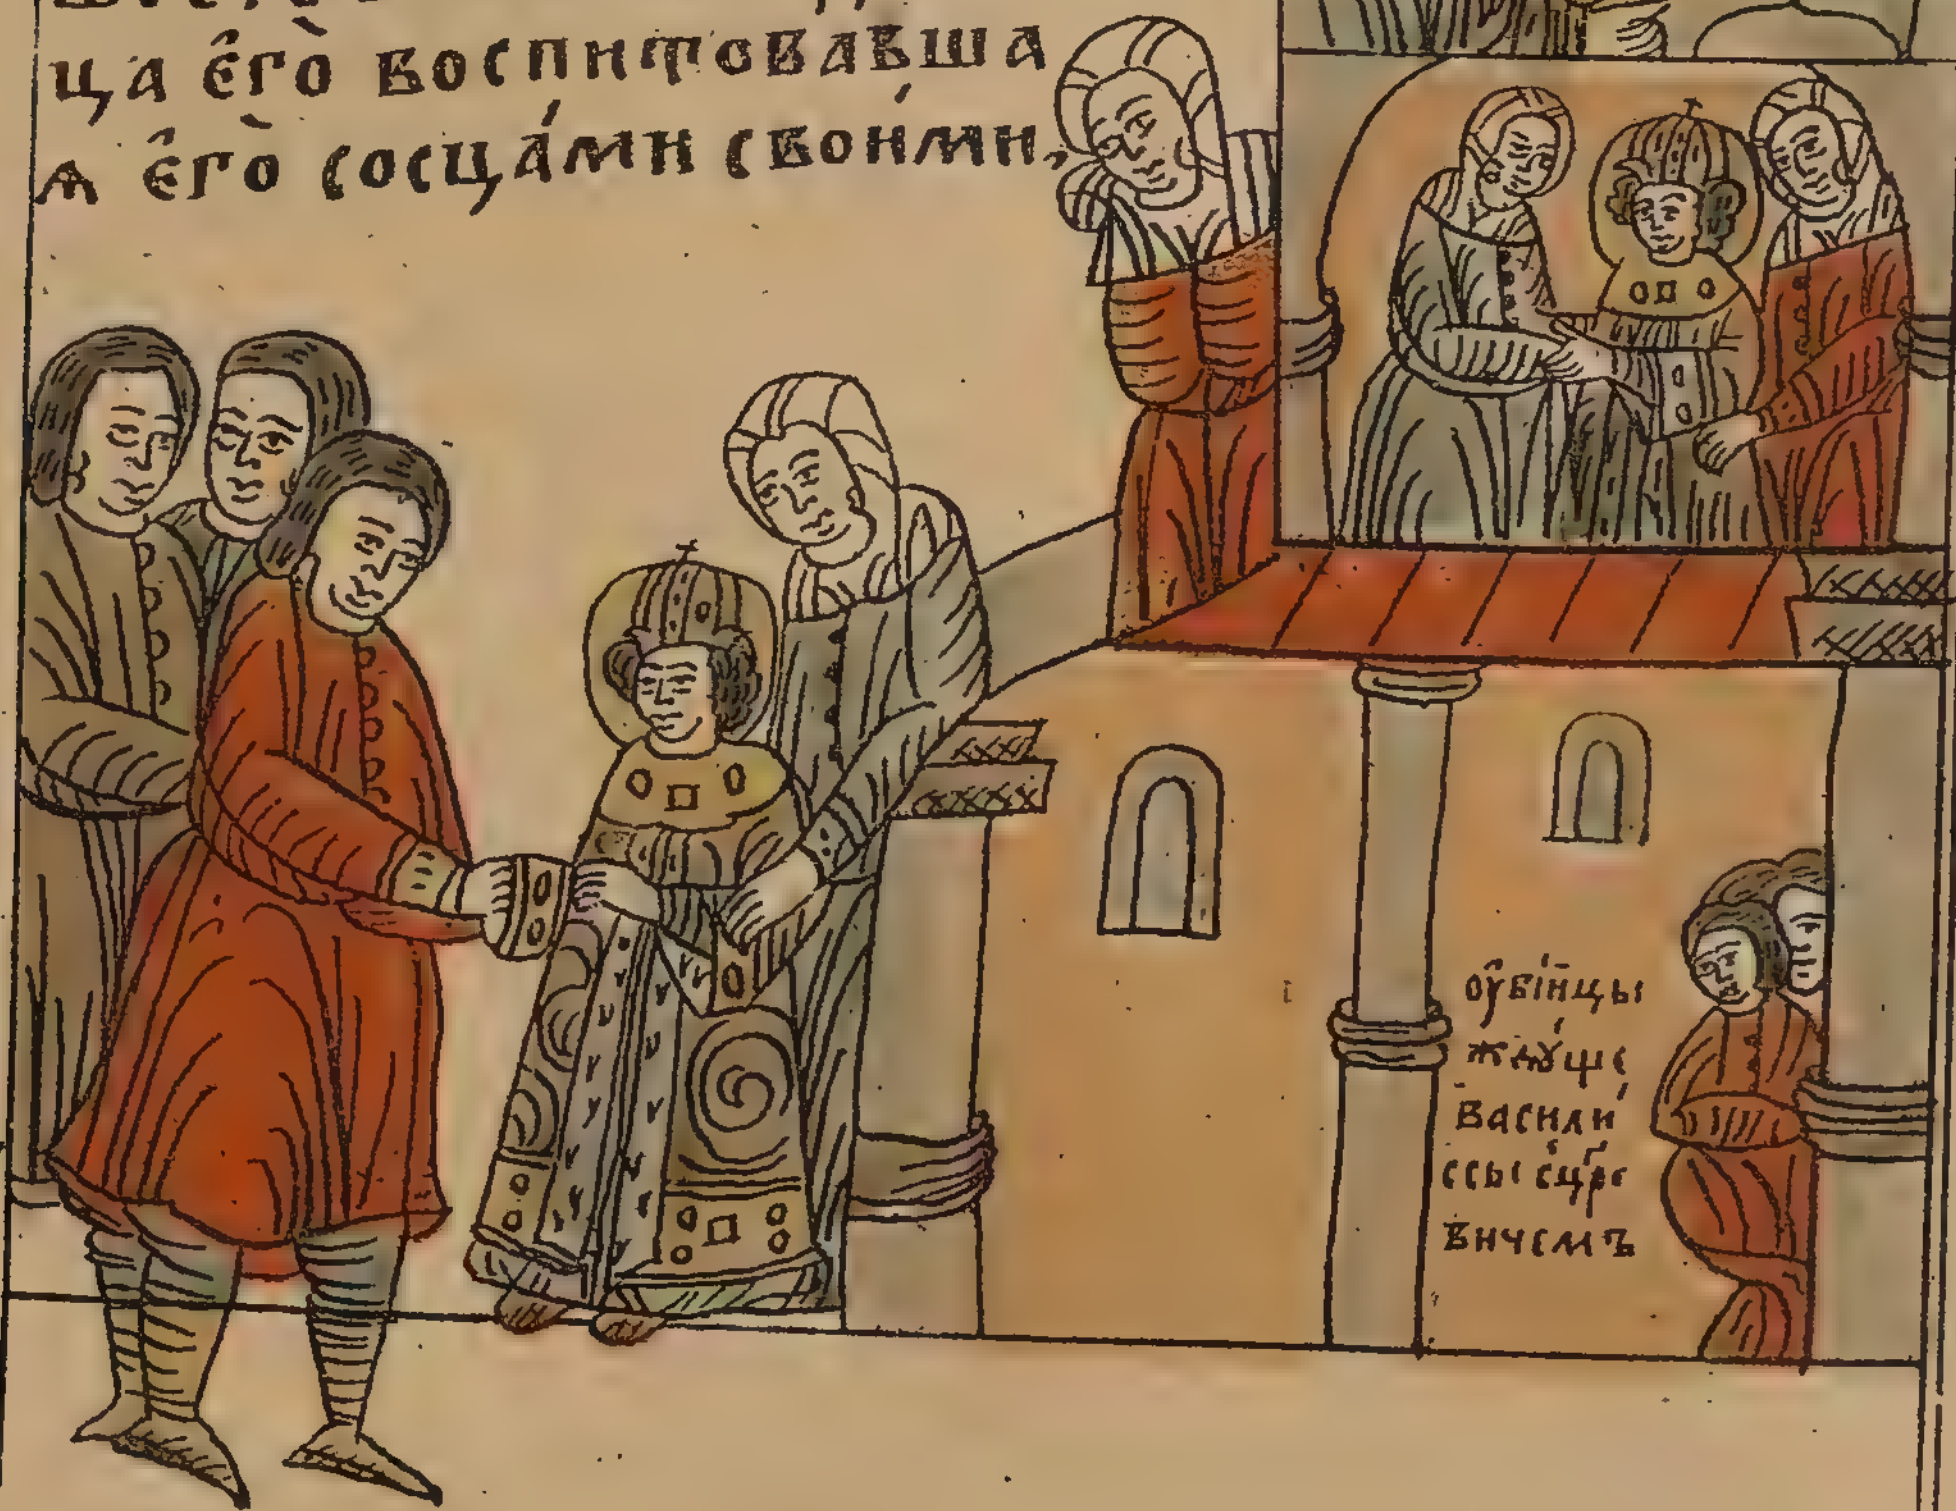 ца є҆го̀ воспитовавша
ѧ є҆го̀ сосца́ми свои́ми,
оу҆бі́йцы
ждꙋ́ще
васили́
ссы с̾цр҃е
вичемъ